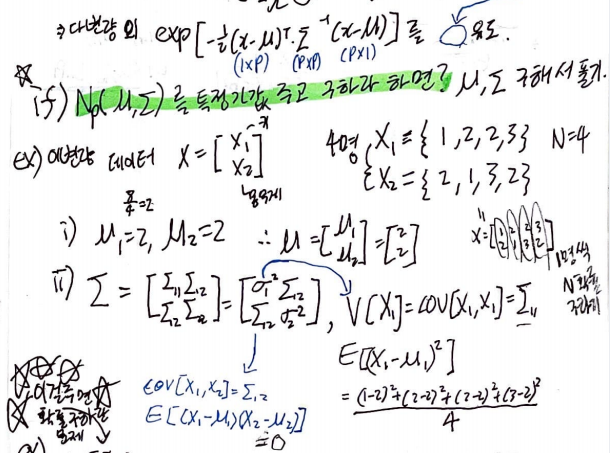 ⇒ 다변량의 exp[-½(x-μ)ᵀ·Σ⁻¹(x-μ)]를 유도.
(1×P) (P×P) (P×1)
☆ if) Np(μ,Σ)를 특정기값 주고 구하라 하면? μ,Σ 구해서 풀기.
ex) 이변량 데이터 X=[X₁ X₂] 4명 {X₁={1,2,2,3} N=4
{X₂={2,1,3,2}
8/4=2
i) μ₁=2, μ₂=2 ∴ μ=[μ₁ μ₂]=[2 2] X=[1 2 2 3 / 2 1 3 2] 1명씩
ii) Σ=[Σ₁₁ Σ₁₂ / Σ₁₂ Σ₂₂]=[σ₁² Σ₁₂ / Σ₁₂ σ₂²], V[X₁]=cov[X₁,X₁]=Σ₁₁
E[(X₁-μ₁)²]
cov[X₁,X₂]=Σ₁₂
E[(X₁-μ₁)(X₂-μ₂)]
=0
=((1-2)²+(2-2)²+(2-2)²+(3-2)²)/4
☆☆☆ 이걸주면
☆ 확률구하란 ☆
문제